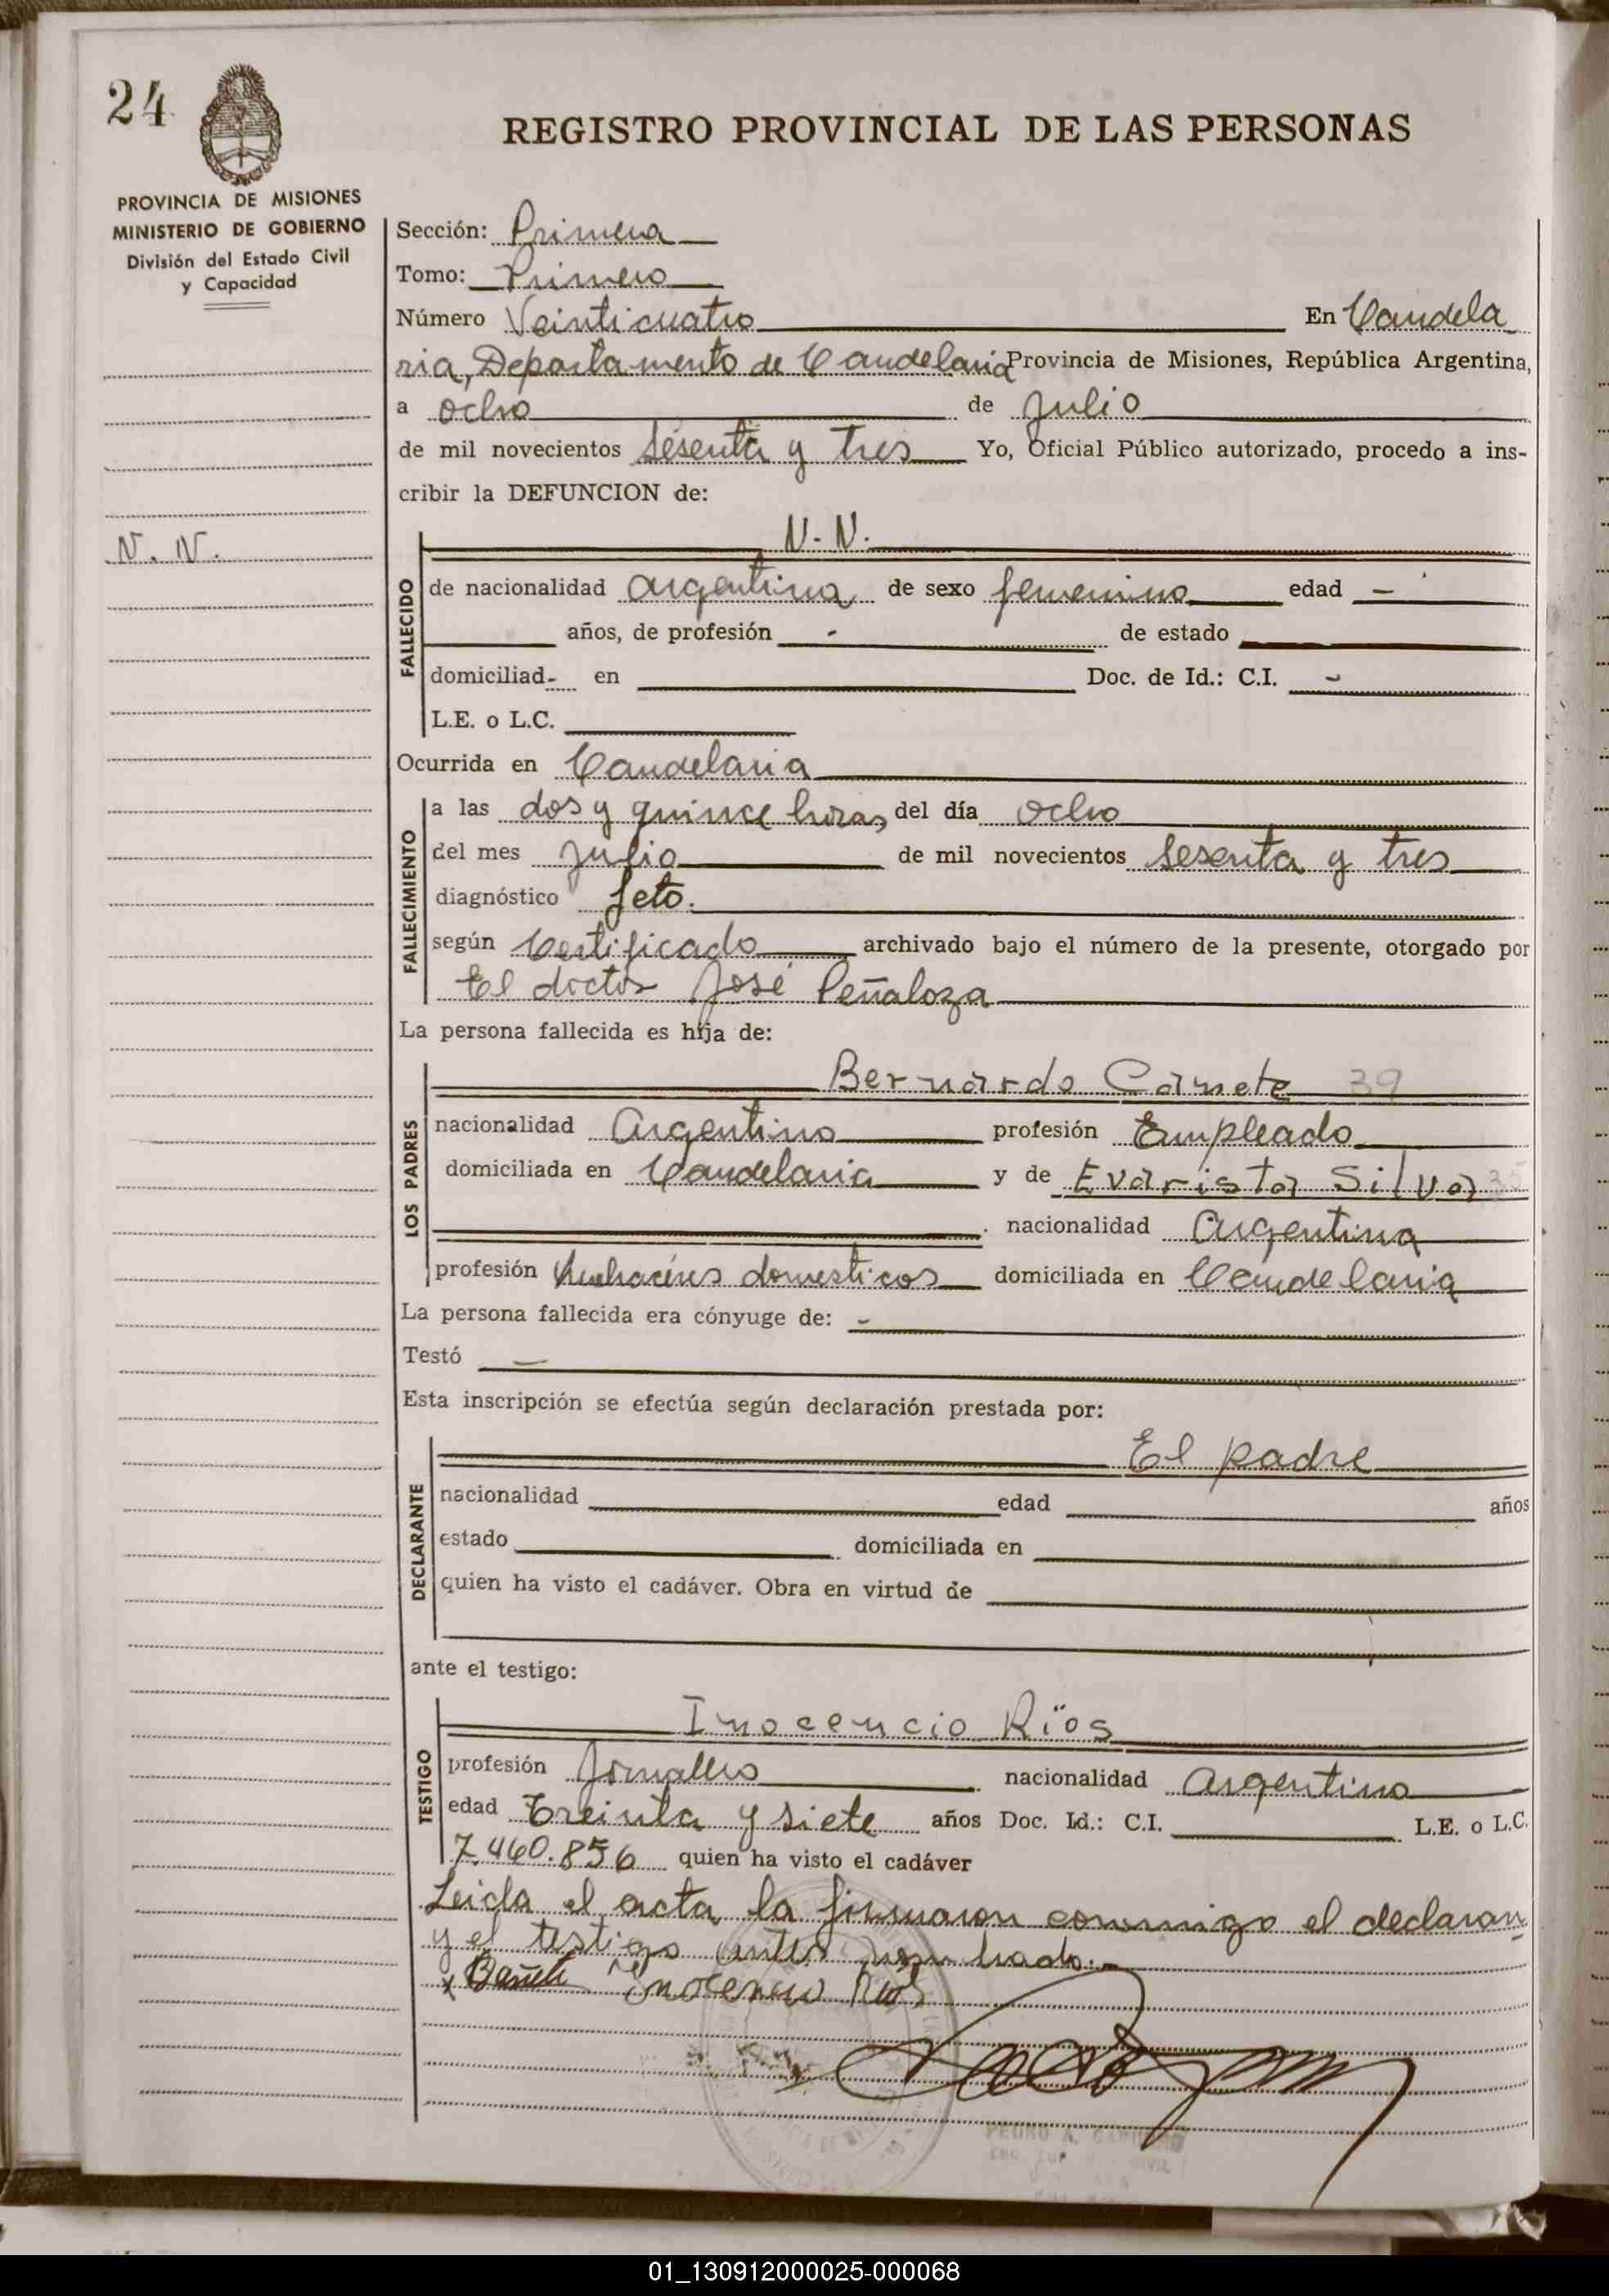 24
REGISTRO PROVINCIAL DE LAS PERSONAS
PROVINCIA DE MISIONES
MINISTERIO DE GOBIERNO
División del Estado Civil
y Capacidad
Sección: Primera
Tomo: Primero
Número Veinticuatro En Candela
ria, Departamento de Candelaria Provincia de Misiones, República Argentina,
a ocho de Julio
de mil novecientos sesenta y tres Yo, Oficial Público autorizado, procedo a ins-
cribir la DEFUNCION de:
N. N.
N. N.
FALLECIDO
de nacionalidad argentina de sexo femenino edad -
años, de profesión - de estado
domiciliad- en Doc. de Id.: C.I. -
L.E. o L.C.
Ocurrida en Candelaria
FALLECIMIENTO
a las dos y quince horas del día ocho
del mes Julio de mil novecientos sesenta y tres
diagnóstico feto.
según Certificado archivado bajo el número de la presente, otorgado por
El doctor José Peñaloza
La persona fallecida es hija de:
LOS PADRES
Bernardo Cañete 39
nacionalidad Argentino profesión Empleado
domiciliada en Candelaria y de Evarista Silva
nacionalidad Argentina
profesión Quehaceres domesticos domiciliada en Candelaria
La persona fallecida era cónyuge de: -
Testó -
Esta inscripción se efectúa según declaración prestada por:
DECLARANTE
El padre
nacionalidad edad años
estado domiciliada en
quien ha visto el cadáver. Obra en virtud de
ante el testigo:
TESTIGO
Inocencio Ríos
profesión Jornalero nacionalidad argentino
edad treinta y siete años Doc. Id.: C.I. L.E. o L.C.
7.460.856 quien ha visto el cadáver
Leida el acta la firmaron conmigo el declaran
y el testigo antes nombrado.-
x Cañete Inocencio Rios
PEDRO A.
01_130912000025-000068